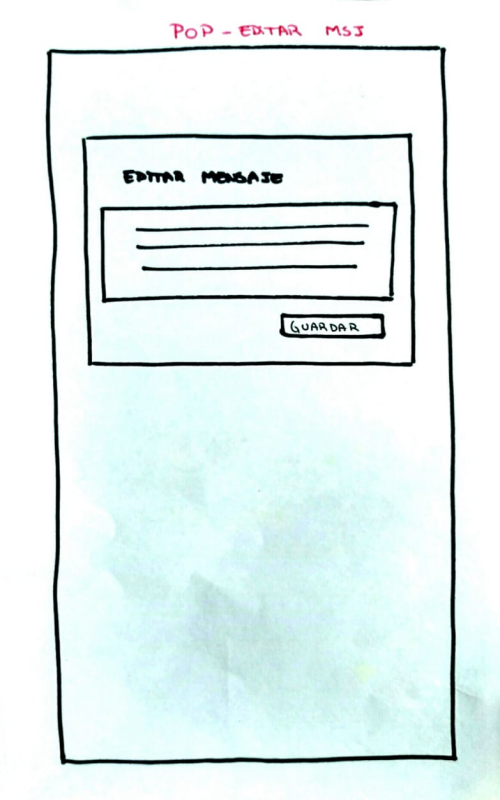 POP - EDITAR MSJ
EDITAR MENSAJE
GUARDAR